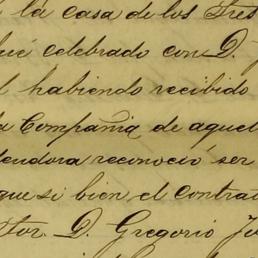 la casa de los Tres
fué celebrado con D.
habiendo recibido
la Compañia de aquel
dendora reconoció ser
que si bien el contra
tor. D. Gregorio